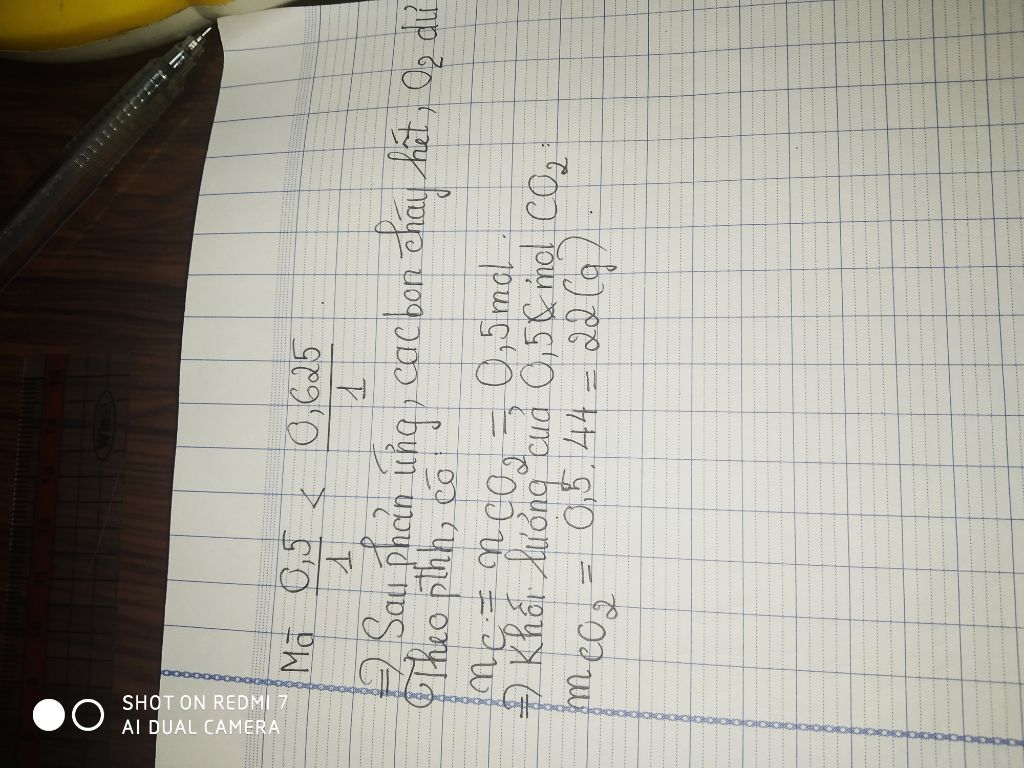 Mà 0,5/1 < 0,625/1
=> Sau phản ứng, cacbon cháy hết, O2 dư
Theo pthh, có:
nC = nCO2 = 0,5 mol.
=> Khối lượng của 0,5 mol CO2:
mCO2 = 0,5.44 = 22(g).
SHOT ON REDMI 7
AI DUAL CAMERA